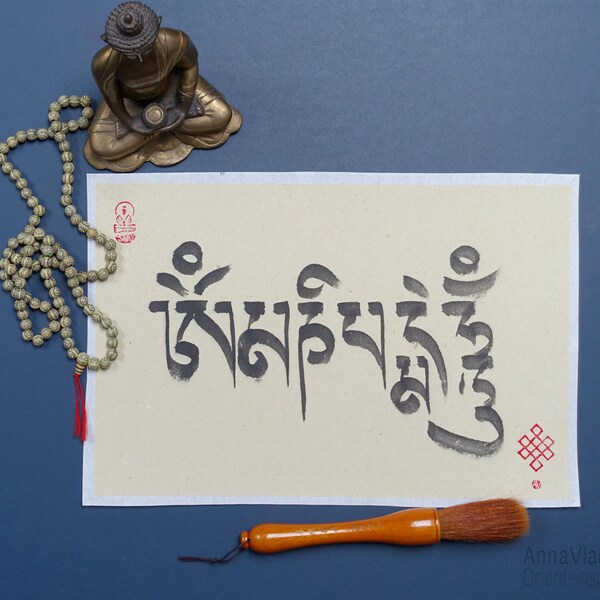 ༀམཎིཔདྨེཧཱུྃ
AnnaVla
Orient-Ins